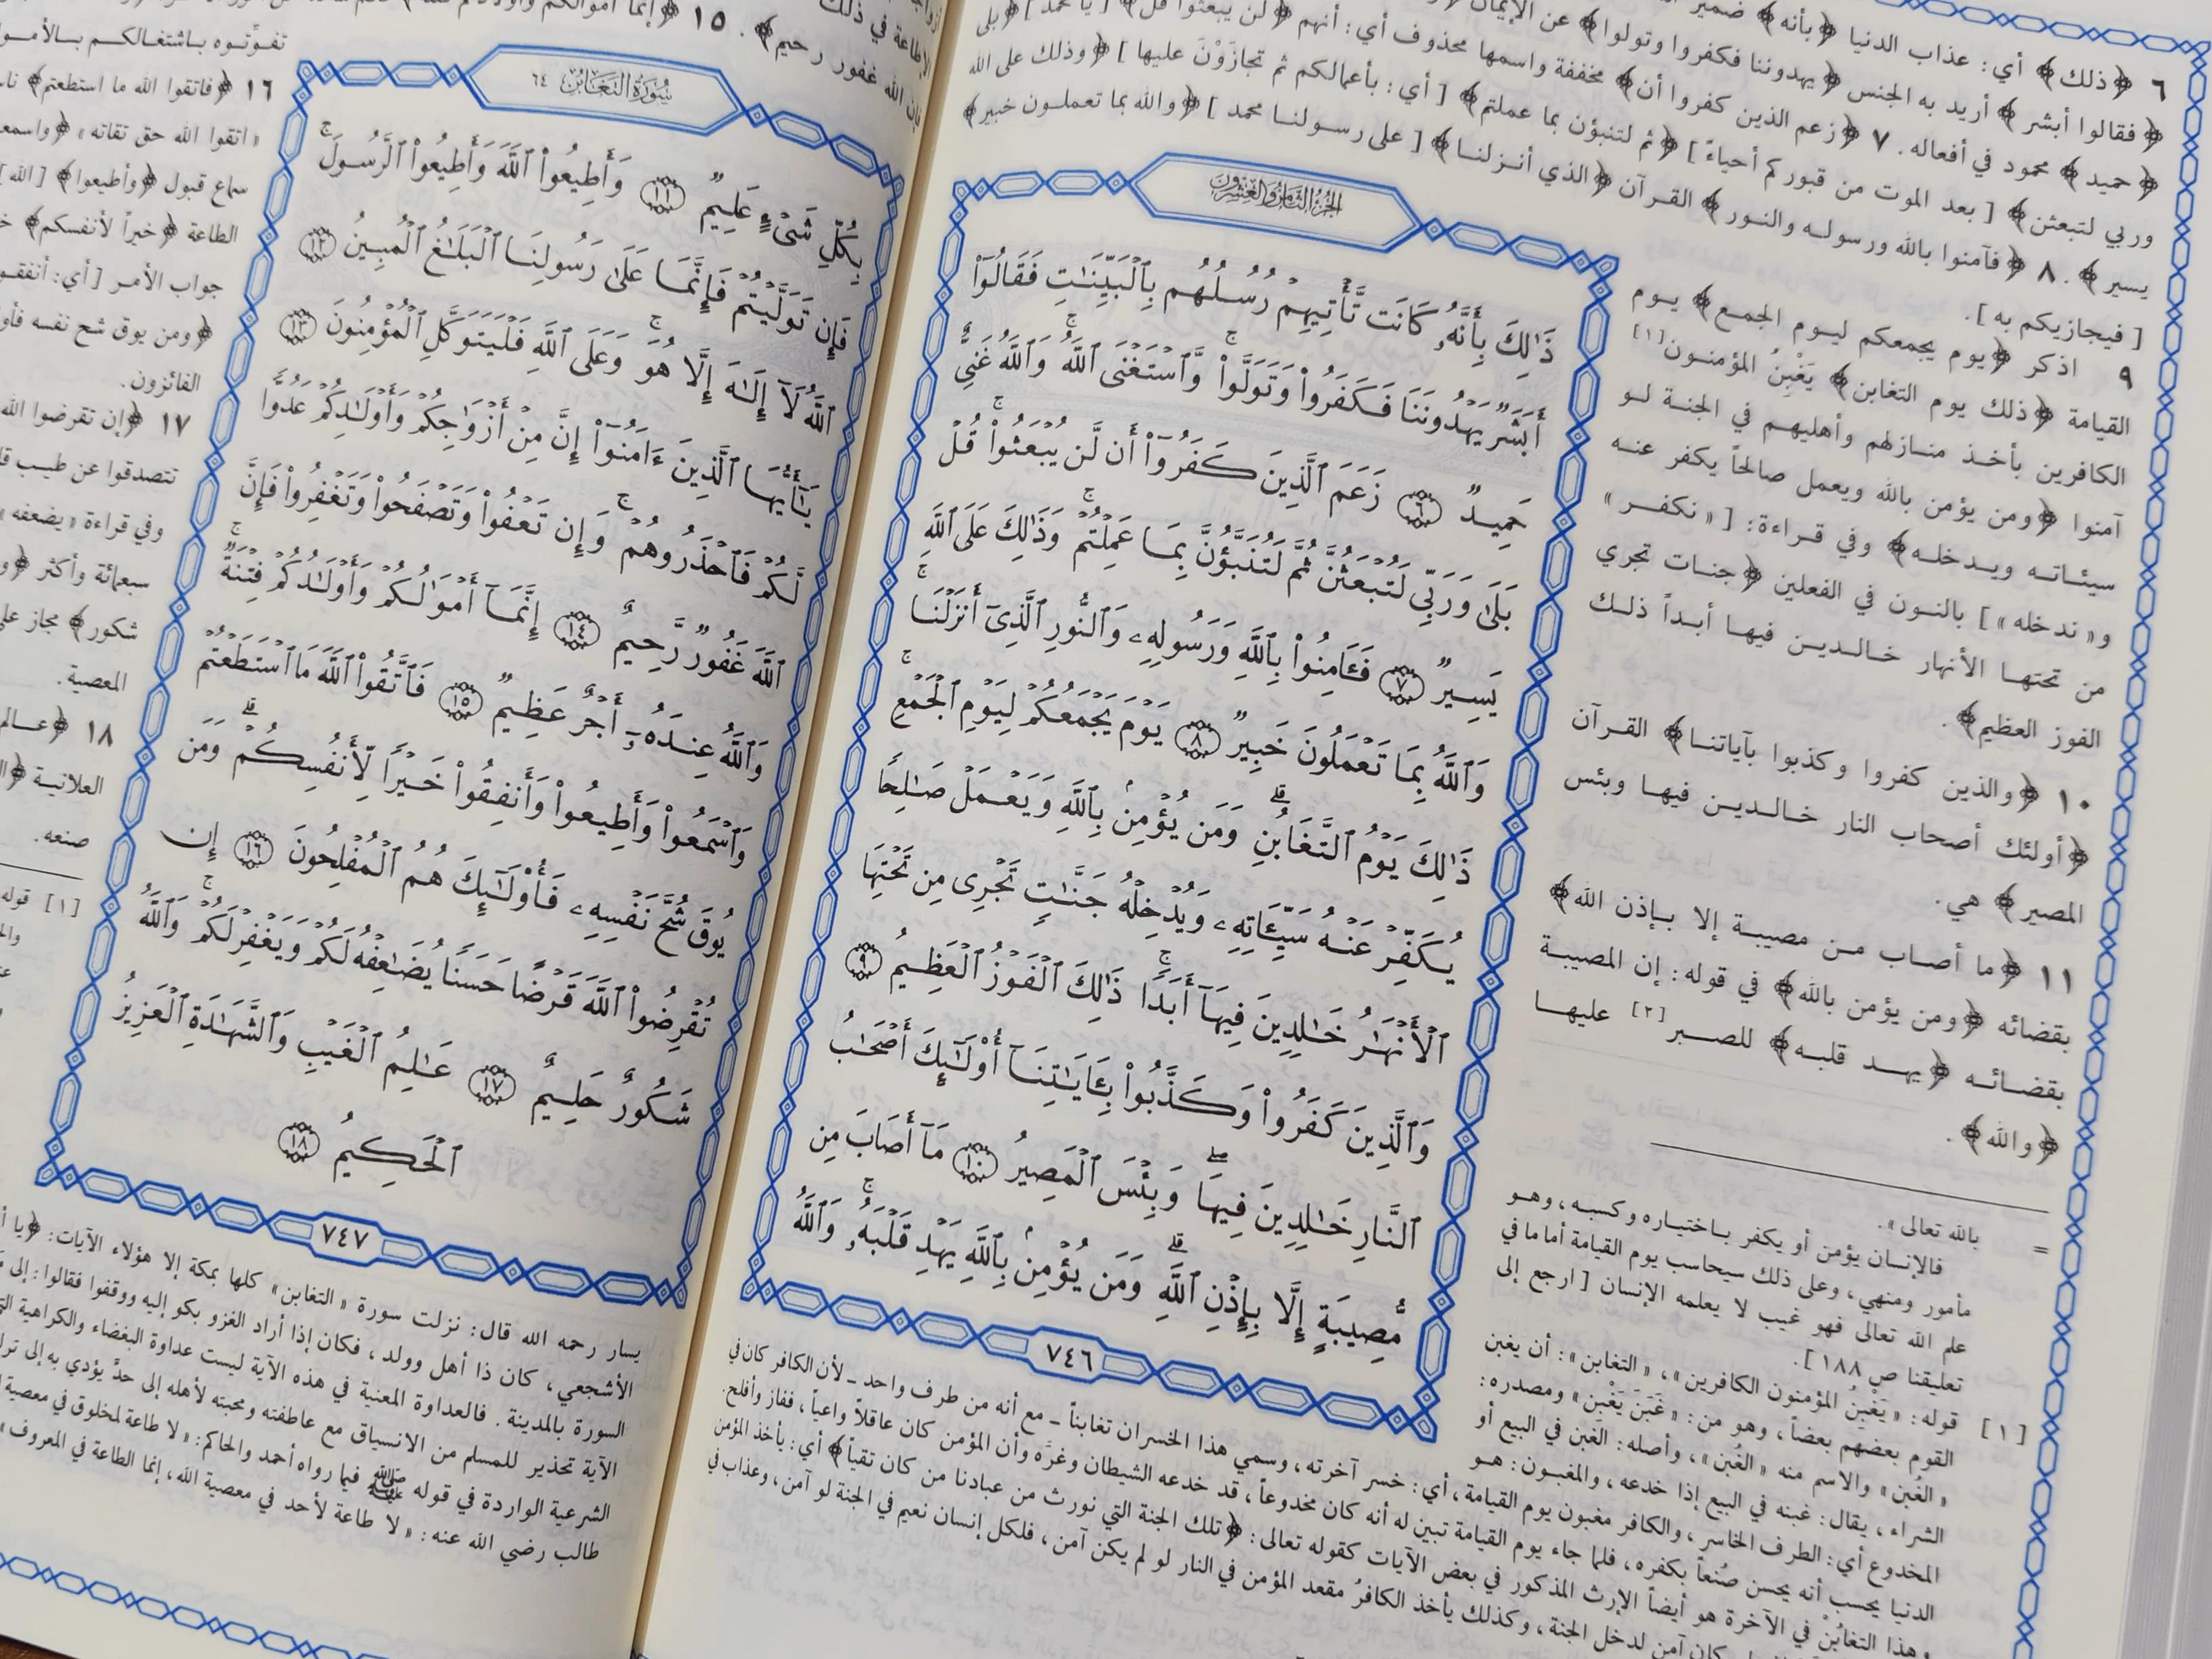 ٦ ﴿ذلك﴾ أي: عذاب الدنيا ﴿بأنه﴾ ضمير
﴿فقالوا أبشر﴾ أريد به الجنس ﴿يهدوننا فكفروا وتولوا﴾ عن الإيمان
﴿حميد﴾ محمود في أفعاله. ٧ ﴿زعم الذين كفروا أن﴾ مخففة واسمها محذوف أي: أنهم ﴿لن يبعثوا قل﴾ [يا محمد] ﴿بلى
وربي لتبعثن﴾ [بعد الموت من قبوركم أحياءً] ﴿ثم لتنبؤن بما عملتم﴾ [أي: بأعمالكم ثم تجازَوْنَ عليها] ﴿وذلك على الله
يسير﴾. ٨ ﴿فآمنوا بالله ورسوله والنور﴾ القرآن ﴿الذي أنزلنا﴾ [على رسولنا محمد] ﴿والله بما تعملون خبير﴾
[فيجازيكم به].
٩ اذكر ﴿يوم يجمعكم ليوم الجمع﴾ يوم
القيامة ﴿ذلك يوم التغابن﴾ يَغْبِنُ المؤمنون[١]
الكافرين بأخذ منازلهم وأهليهم في الجنة لو
آمنوا ﴿ومن يؤمن بالله ويعمل صالحاً يكفر عنه
سيئاته ويدخله﴾ وفي قراءة: [«نكفر»
و«ندخله»] بالنون في الفعلين ﴿جنات تجري
من تحتها الأنهار خالدين فيها أبداً ذلك
الفوز العظيم﴾.
١٠ ﴿والذين كفروا وكذبوا بآياتنا﴾ القرآن
﴿أولئك أصحاب النار خالدين فيها وبئس
المصير﴾ هي.
١١ ﴿ما أصاب من مصيبة إلا بإذن الله﴾
بقضائه ﴿ومن يؤمن بالله﴾ في قوله: إن المصيبة
بقضائه ﴿يهد قلبه﴾ للصبر[٢] عليها
﴿والله﴾.
الجزء الثامن والعشرون
ذَٰلِكَ بِأَنَّهُۥ كَانَت تَّأْتِيهِمْ رُسُلُهُم بِٱلْبَيِّنَٰتِ فَقَالُوٓا۟
أَبَشَرٌ يَهْدُونَنَا فَكَفَرُوا۟ وَتَوَلَّوا۟ ۚ وَّٱسْتَغْنَى ٱللَّهُ ۚ وَٱللَّهُ غَنِىٌّ
حَمِيدٌ ٦ زَعَمَ ٱلَّذِينَ كَفَرُوٓا۟ أَن لَّن يُبْعَثُوا۟ ۚ قُلْ
بَلَىٰ وَرَبِّى لَتُبْعَثُنَّ ثُمَّ لَتُنَبَّؤُنَّ بِمَا عَمِلْتُمْ ۚ وَذَٰلِكَ عَلَى ٱللَّهِ
يَسِيرٌ ٧ فَـَٔامِنُوا۟ بِٱللَّهِ وَرَسُولِهِۦ وَٱلنُّورِ ٱلَّذِىٓ أَنزَلْنَا ۚ
وَٱللَّهُ بِمَا تَعْمَلُونَ خَبِيرٌ ٨ يَوْمَ يَجْمَعُكُمْ لِيَوْمِ ٱلْجَمْعِ ۖ
ذَٰلِكَ يَوْمُ ٱلتَّغَابُنِ ۗ وَمَن يُؤْمِنۢ بِٱللَّهِ وَيَعْمَلْ صَٰلِحًا
يُكَفِّرْ عَنْهُ سَيِّـَٔاتِهِۦ وَيُدْخِلْهُ جَنَّٰتٍ تَجْرِى مِن تَحْتِهَا
ٱلْأَنْهَٰرُ خَٰلِدِينَ فِيهَآ أَبَدًا ۚ ذَٰلِكَ ٱلْفَوْزُ ٱلْعَظِيمُ ٩
وَٱلَّذِينَ كَفَرُوا۟ وَكَذَّبُوا۟ بِـَٔايَٰتِنَآ أُو۟لَٰٓئِكَ أَصْحَٰبُ
ٱلنَّارِ خَٰلِدِينَ فِيهَا ۖ وَبِئْسَ ٱلْمَصِيرُ ١٠ مَآ أَصَابَ مِن
مُّصِيبَةٍ إِلَّا بِإِذْنِ ٱللَّهِ ۗ وَمَن يُؤْمِنۢ بِٱللَّهِ يَهْدِ قَلْبَهُۥ ۚ وَٱللَّهُ
٧٤٦
= بالله تعالى».
فالإنسان يؤمن أو يكفر باختياره وكسبه، وهو
مأمور ومنهي، وعلى ذلك سيحاسب يوم القيامة أما ما في
علم الله تعالى فهو غيب لا يعلمه الإنسان [ارجع إلى
تعليقنا ص ١٨٨].
[١] قوله: «يَغْبِنُ المؤمنون الكافرين»، «التغابن»: أن يغبن
القوم بعضهم بعضاً، وهو من: «غَبَنَ يَغْبِن» ومصدره:
«الغُبن» والاسم منه «الغُبن»، وأصله: الغبن في البيع أو
الشراء، يقال: غبنه في البيع إذا خدعه، والمغبون: هو
المخدوع أي: الطرف الخاسر، والكافر مغبون يوم القيامة، أي: خسر آخرته، وسمي هذا الخسران تغابناً ـ مع أنه من طرف واحد ـ لأن الكافر كان في
الدنيا يحسب أنه يحسن صُنعاً بكفره، فلما جاء يوم القيامة تبين له أنه كان مخدوعاً، قد خدعه الشيطان وغرَّه وأن المؤمن كان عاقلاً واعياً، ففاز وأفلح.
وهذا التغابُن في الآخرة هو أيضاً الإرث المذكور في بعض الآيات كقوله تعالى: ﴿تلك الجنة التي نورث من عبادنا من كان تقياً﴾ أي: يأخذ المؤمن
كان آمن لدخل الجنة، وكذلك يأخذ الكافرُ مقعد المؤمن في النار لو لم يكن آمن، فلكل إنسان نعيم في الجنة لو آمن، وعذاب في
الإطاعة في ذلك
فإن الله غفور رحيم﴾. ١٥
تفوّتوه باشتغالكم
١٦ ﴿فاتقوا الله ما استطعتم﴾
«اتقوا الله حق تقاته»
سماع قبول ﴿وأطيعوا﴾ [الله]
الطاعة ﴿خيراً لأنفسكم﴾
جواب الأمر [أي: أنفقوا
﴿ومن يوق شح نفسه
الفائزون.
١٧ ﴿إن تقرضوا الله
تتصدقوا عن طيب
وفي قراءة «يضعفه»
سبعمائة وأكثر
شكور﴾ مجاز
المعصية.
١٨ ﴿عالم
العلانية
صنعه.
[١] قوله
سورة التغابن ٦٤
بِكُلِّ شَىْءٍ عَلِيمٌ ١١ وَأَطِيعُوا۟ ٱللَّهَ وَأَطِيعُوا۟ ٱلرَّسُولَ ۚ
فَإِن تَوَلَّيْتُمْ فَإِنَّمَا عَلَىٰ رَسُولِنَا ٱلْبَلَٰغُ ٱلْمُبِينُ ١٢
ٱللَّهُ لَآ إِلَٰهَ إِلَّا هُوَ ۚ وَعَلَى ٱللَّهِ فَلْيَتَوَكَّلِ ٱلْمُؤْمِنُونَ ١٣
يَٰٓأَيُّهَا ٱلَّذِينَ ءَامَنُوٓا۟ إِنَّ مِنْ أَزْوَٰجِكُمْ وَأَوْلَٰدِكُمْ عَدُوًّا
لَّكُمْ فَٱحْذَرُوهُمْ ۚ وَإِن تَعْفُوا۟ وَتَصْفَحُوا۟ وَتَغْفِرُوا۟ فَإِنَّ
ٱللَّهَ غَفُورٌ رَّحِيمٌ ١٤ إِنَّمَآ أَمْوَٰلُكُمْ وَأَوْلَٰدُكُمْ فِتْنَةٌ ۚ
وَٱللَّهُ عِندَهُۥٓ أَجْرٌ عَظِيمٌ ١٥ فَٱتَّقُوا۟ ٱللَّهَ مَا ٱسْتَطَعْتُمْ
وَٱسْمَعُوا۟ وَأَطِيعُوا۟ وَأَنفِقُوا۟ خَيْرًا لِّأَنفُسِكُمْ ۗ وَمَن
يُوقَ شُحَّ نَفْسِهِۦ فَأُو۟لَٰٓئِكَ هُمُ ٱلْمُفْلِحُونَ ١٦ إِن
تُقْرِضُوا۟ ٱللَّهَ قَرْضًا حَسَنًا يُضَٰعِفْهُ لَكُمْ وَيَغْفِرْ لَكُمْ ۚ وَٱللَّهُ
شَكُورٌ حَلِيمٌ ١٧ عَٰلِمُ ٱلْغَيْبِ وَٱلشَّهَٰدَةِ ٱلْعَزِيزُ
ٱلْحَكِيمُ ١٨
٧٤٧
يسار رحمه الله قال: نزلت سورة «التغابن» كلها بمكة إلا هؤلاء الآيات:
الأشجعي، كان ذا أهل وولد، فكان إذا أراد الغزو بكو إليه ووقفوا فقالوا: إلى
السورة بالمدينة. فالعداوة المعنية في هذه الآية ليست عداوة البغضاء والكراهية
الآية تحذير للمسلم من الانسياق مع عاطفته ومحبته لأهله إلى حدٍّ يؤدي به إلى
الشرعية الواردة في قوله ﷺ فيما رواه أحمد والحاكم: «لا طاعة لمخلوق في معصية
طالب رضي الله عنه: «لا طاعة لأحد في معصية الله، إنما الطاعة في المعروف»